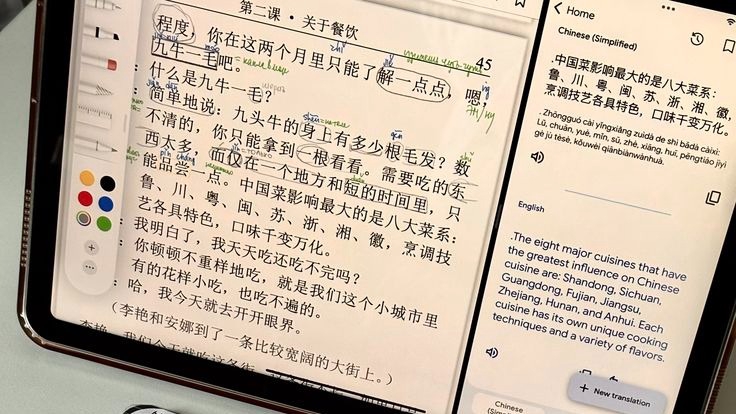 第二课·关于餐饮
45
程度，你在这两个月里只能了解一点点，嗯，
九牛一毛吧。
：什么是九牛一毛？
：简单地说：九头牛的身上有多少根毛发？数
不清的，你只能拿到一根看看。需要吃的东
西太多，而仅在一个地方和短的时间里，只
能品尝一点。中国菜影响最大的是八大菜系：
鲁、川、粤、闽、苏、浙、湘、徽，烹调技
艺各具特色，口味千变万化。
：我明白了，我天天吃还吃不完吗？
：你顿顿不重样地吃，就是我们这个小城市里
有的花样小吃，也吃不遍的。
：哈，我今天就去开开眼界。
（李艳和安娜到了一条比较宽阔的大街上。）
李艳：我们今天就吃这条街
Home
Chinese (Simplified)
.中国菜影响最大的是八大菜系：
鲁、川、粤、闽、苏、浙、湘、徽，
烹调技艺各具特色，口味千变万化。
.Zhōngguó cài yǐngxiǎng zuìdà de shì bādà càixì:
Lǔ, chuān, yuè, mǐn, sū, zhè, xiāng, huī, pēngtiáo jìyì
gè jù tèsè, kǒuwèi qiānbiànwànhuà.
English
.The eight major cuisines that have
the greatest influence on Chinese
cuisine are: Shandong, Sichuan,
Guangdong, Fujian, Jiangsu,
Zhejiang, Hunan, and Anhui. Each
cuisine has its own unique cooking
techniques and a variety of flavors.
+ New translation
Chinese